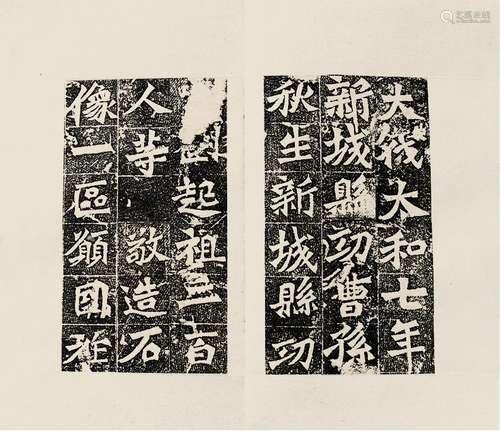 大伐太和七年
新城縣功曹孫
秋生新城縣功
起祖二百
人等敬造石
像一區願國祚